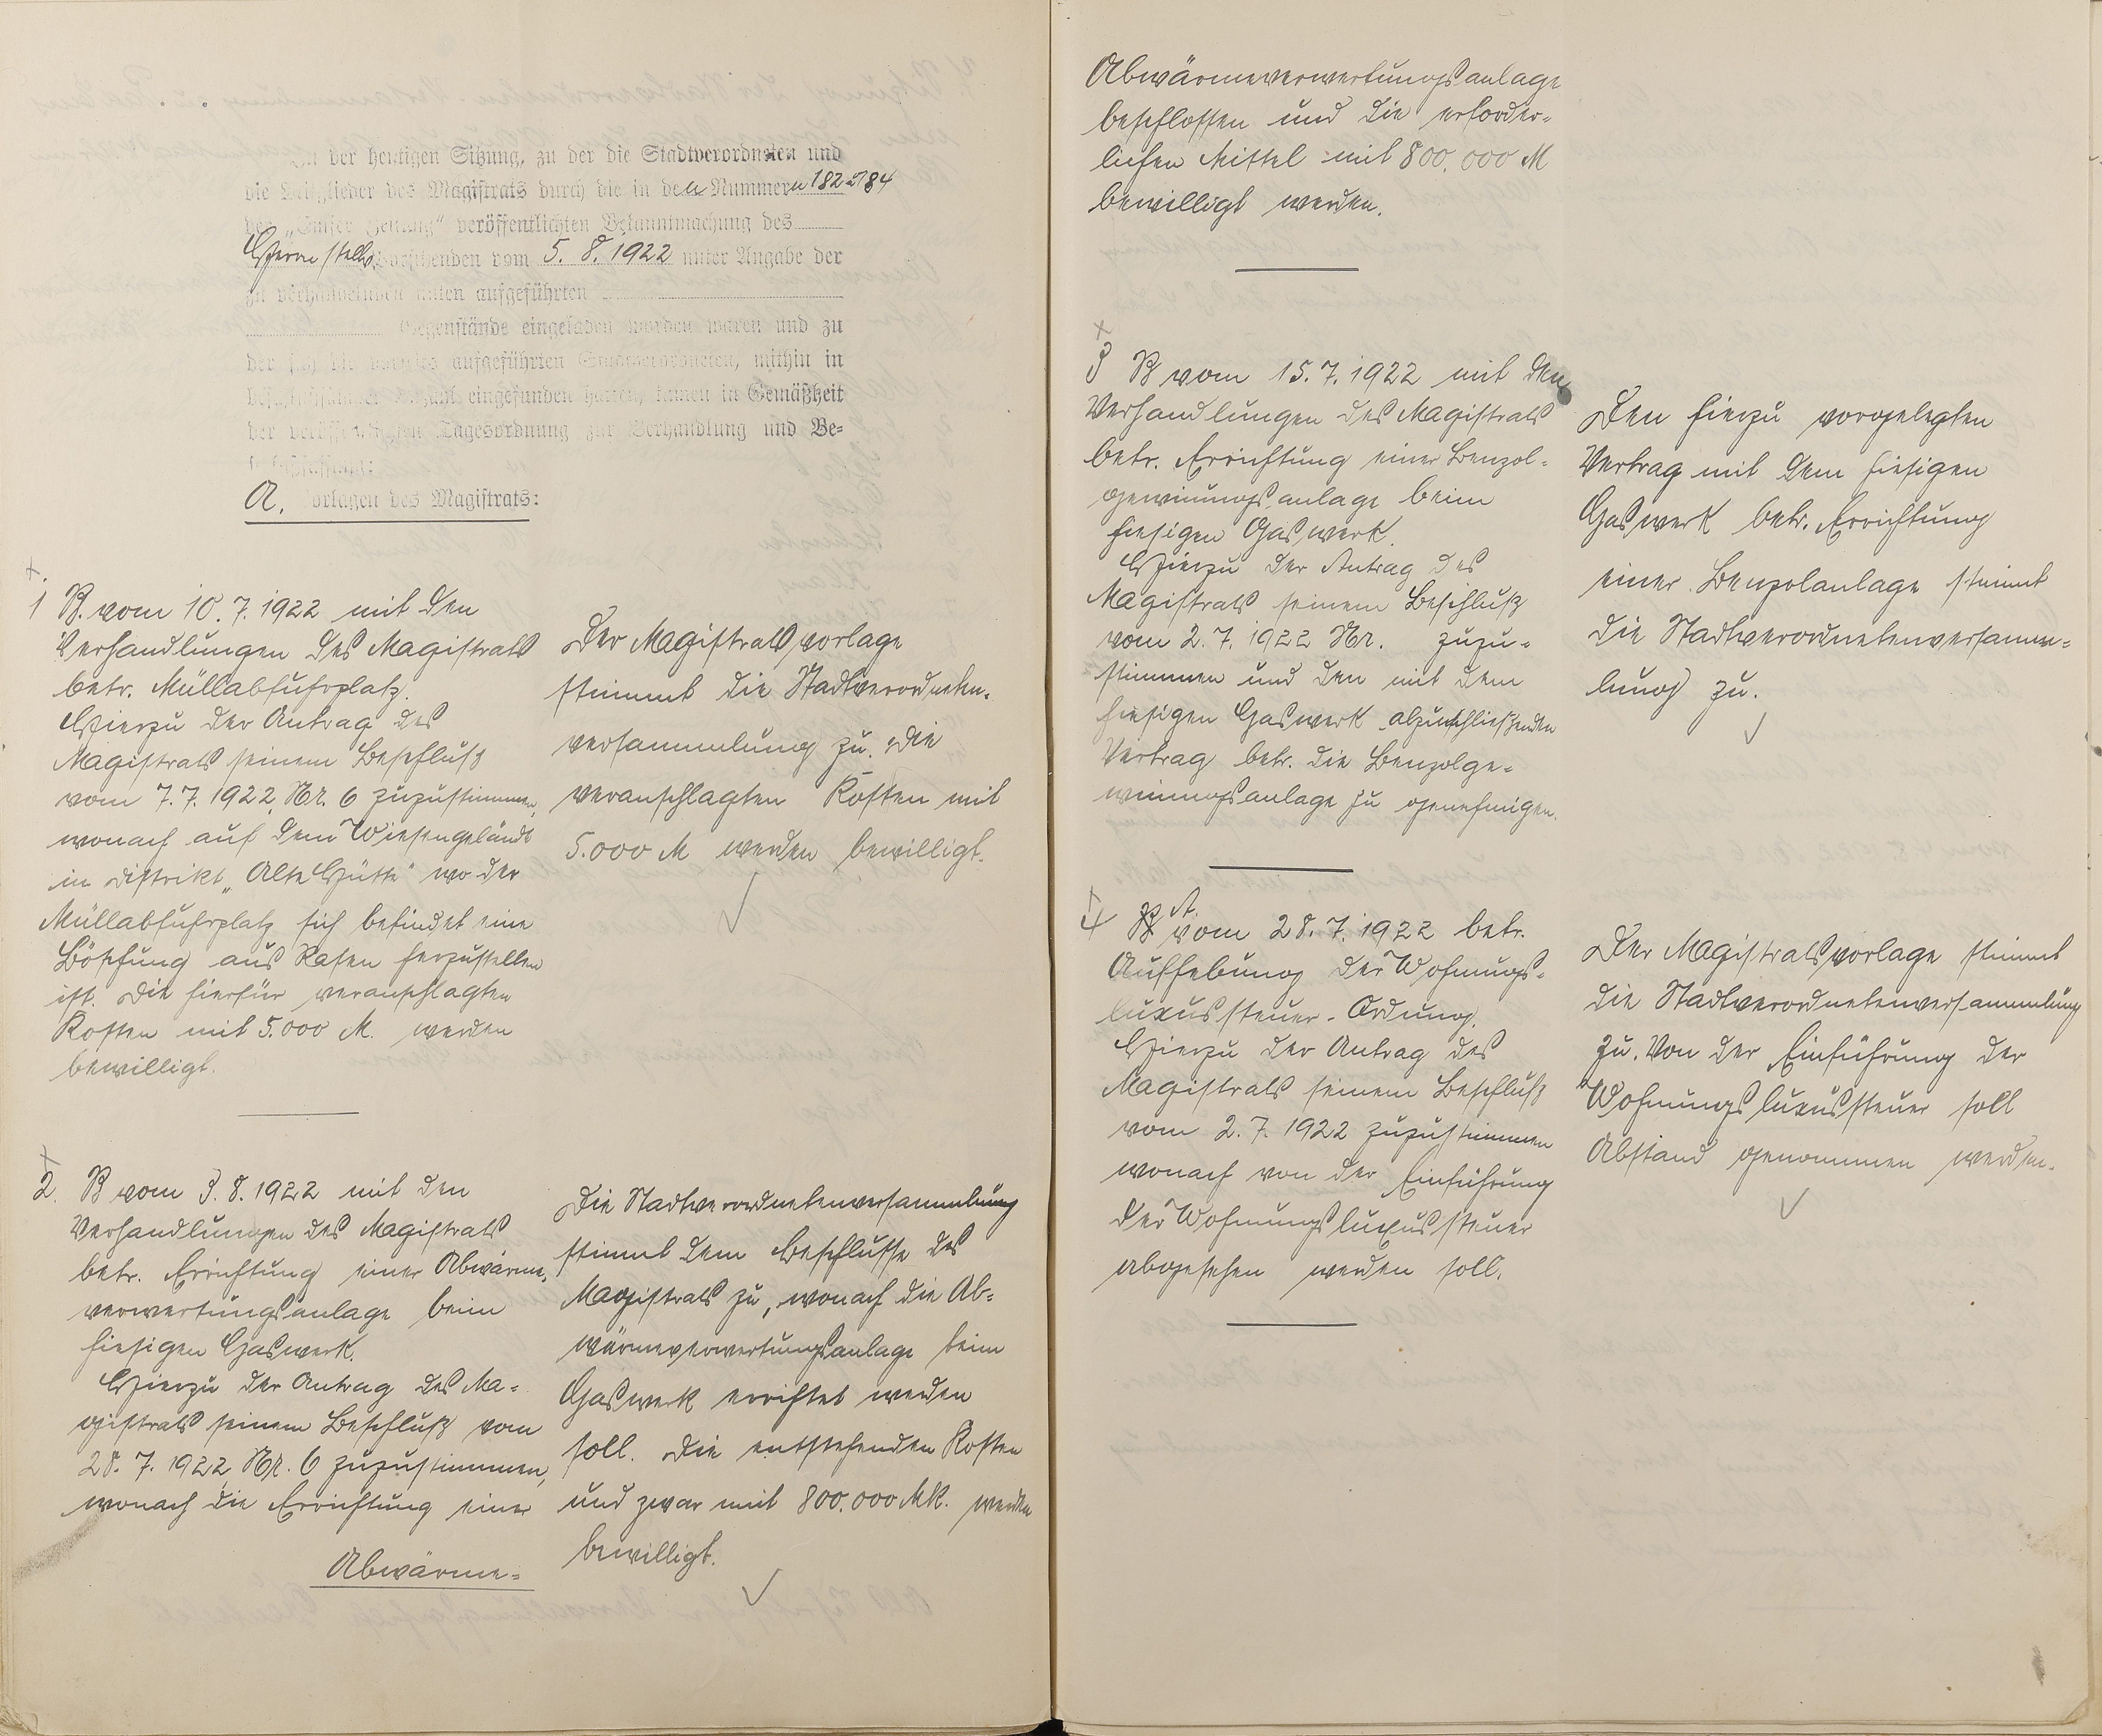 In der heutigen Sitzung, zu der die Stadtverordneten und
die Mitglieder des Magistrats durch die in den Nummern 182 u 184
der „Emser Zeitung" veröffentlichten Bekanntmachung des
Herrn stellv. Vorsitzenden vom 5. 8. 1922 unter Angabe der
zu verhandelnden unten aufgeführten
Gegenstände eingeladen worden waren und zu
der sich die vornits aufgeführten Stadtverordneten, mithin in
beschlussfähiger Anzahl eingefunden hatten, kamen in Gemäßheit
der veröffentlichten Tagesordnung zur Verhandlung und Be-
schlußfassung:
A. Vorlagen des Magistrats:
1 B. vom 10. 7. 1922 mit den
Verhandlungen des Magistrats
betr. Müllabfuhrplatz.
Hierzu der Antrag des
Magistrats seinem Beschluß
vom 7. 7. 1922 Nr. 6 zuzustimmen,
wonach auf dem Wiesengelände
in Distrikt „Alte Hütte" wo der
Müllabfuhrplatz sich befindet eine
Böschung aus Rasen herzustellen
ist. Die hierfür veranschlagten
Kosten mit 5.000 M. werden
bewilligt.
Der Magistratsvorlage
stimmt die Stadtverordneten-
versammlung zu. Die
veranschlagten Kosten mit
5.000 M werden bewilligt.
2. B vom 3. 8. 1922 mit den
Verhandlungen des Magistrats
betr. Errichtung einer Abwärme-
verwertungsanlage beim
hiesigen Gaswerk.
Hierzu der Antrag des Ma-
gistrats seinem Beschluß vom
28. 7. 1922 Nr. 6 zuzustimmen,
wonach die Errichtung einer
Abwärme-
Die Stadtverordnetenversammlung
stimmt dem Beschlusse des
Magistrats zu, wonach die Ab-
wärmeverwertungsanlage beim
Gaswerk errichtet werden
soll. Die entstehenden Kosten
und zwar mit 800.000 Mk. werden
bewilligt.
Abwärmeverwertungsanlage
beschlossen und die erforder-
lichen Mittel mit 800.000 M
bewilligt werden.
3 B vom 15. 7. 1922 mit den
Verhandlungen des Magistrats
betr. Errichtung einer Benzol-
gewinnungsanlage beim
hiesigen Gaswerk.
Hierzu der Antrag des
Magistrats seinem Beschluß
vom 2. 7. 1922 Nr. zuzu-
stimmen und den mit dem
hiesigen Gaswerk abzuschließenden
Vertrag betr. die Benzolge-
winnungsanlage zu genehmigen.
Den hierzu vorgelegten
Vertrag mit dem hiesigen
Gaswerk betr. Errichtung
einer Benzolanlage stimmt
die Stadtverordnetenversamm-
lung zu.
4 A. vom 28. 7. 1922 betr.
Aufhebung der Wohnungs-
luxussteuer-Ordnung.
Hierzu der Antrag des
Magistrats seinem Beschluß
vom 2. 7. 1922 zuzustimmen
wonach von der Einführung
der Wohnungsluxussteuer
abgesehen werden soll.
Der Magistratsvorlage stimmt
die Stadtverordnetenversammlung
zu. Von der Einführung der
Wohnungsluxussteuer soll
Abstand genommen werden.